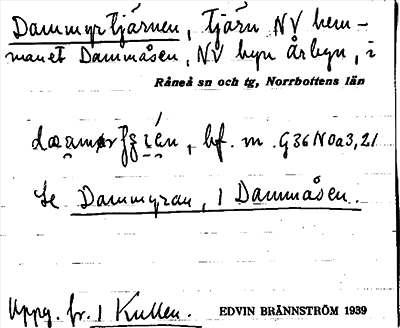 Dammyrtjärnen, tjärn NV hem-
manet Dammåsen, NV byn Årbyn, i
Råneå sn och tg, Norrbottens län
bf. m. G36N0a3,21
Se Dammyran, 1 Dammåsen.
Uppg. fr. 1 Kullen. EDVIN BRÄNNSTRÖM 1939